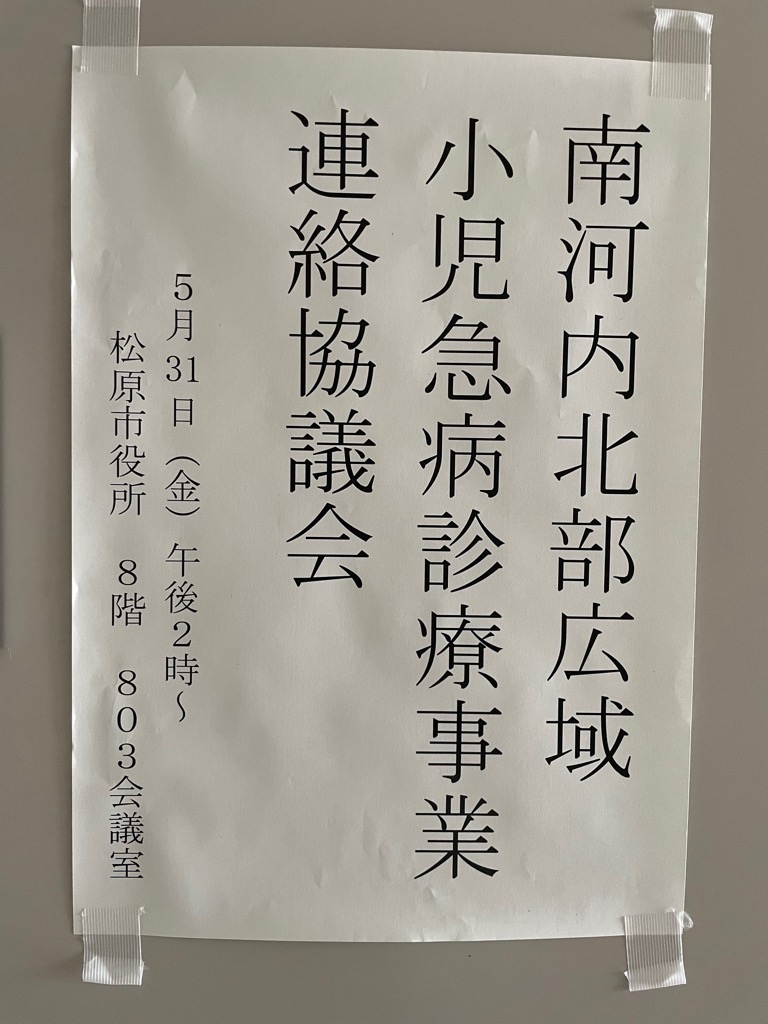 南河内北部広域
小児急病診療事業
連絡協議会
５月31日（金）午後２時～
松原市役所　８階　８０３会議室